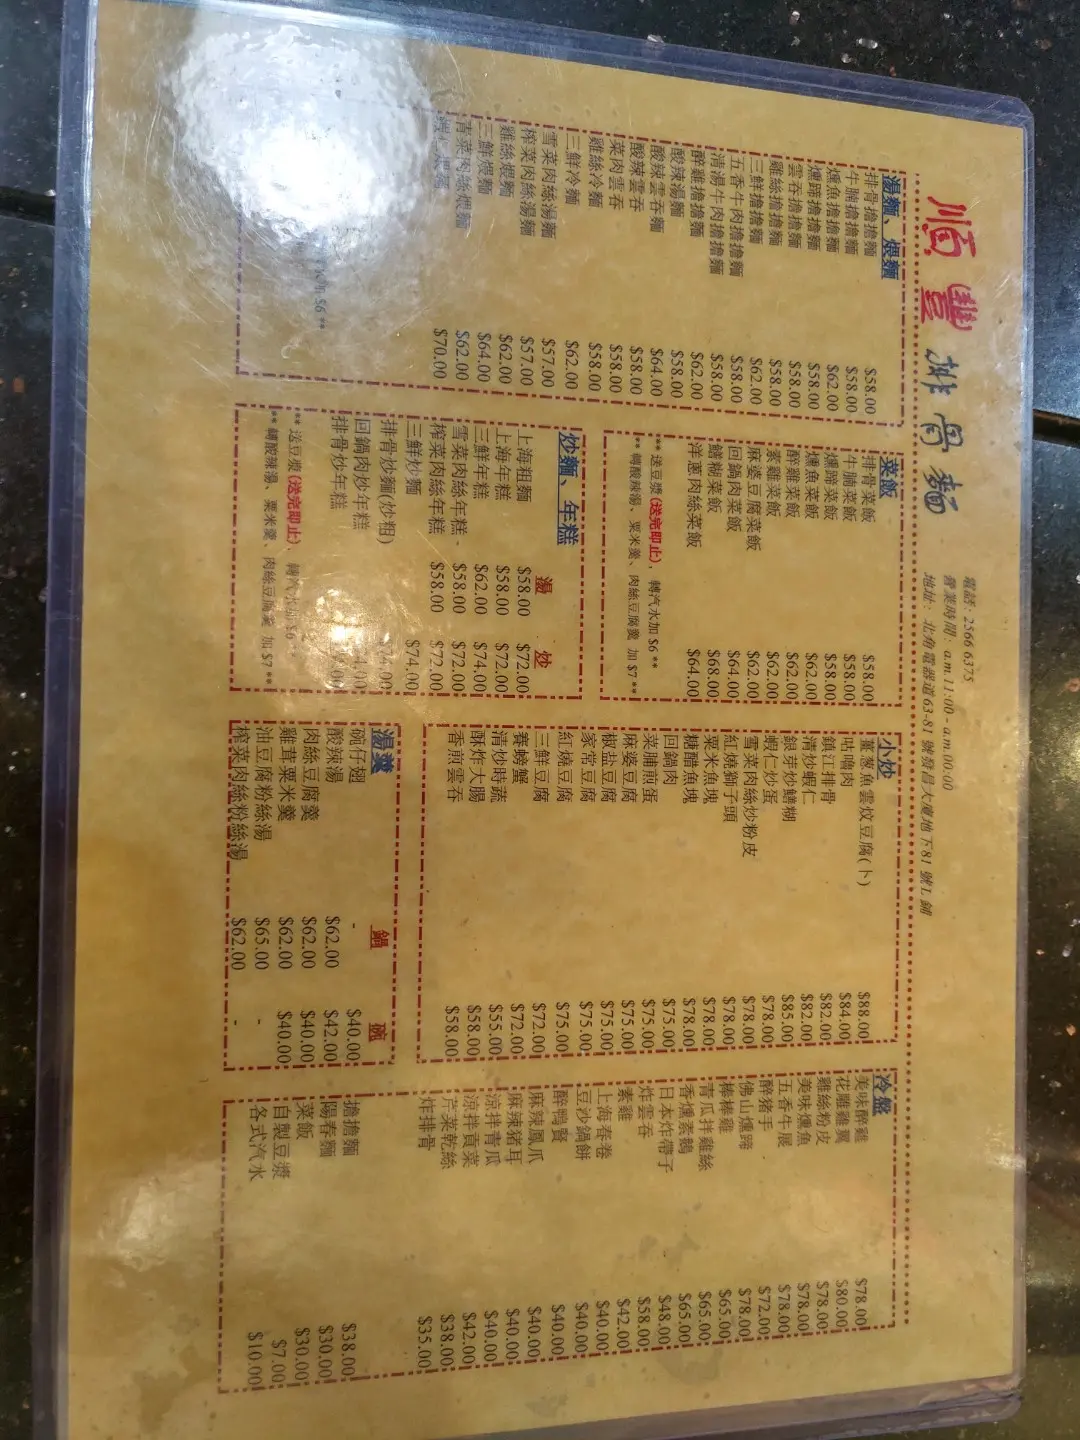 順豐 排骨麵
電話: 2566 6375
營業時間: a.m.11:00 - a.m.00:00
地址: 北角電器道63-81 號發昌大廈地下81 號L舖
湯麵、煨麵
排骨擔擔麵 $58.00
牛腩擔擔麵 $58.00
燻魚擔擔麵 $62.00
燻蹄擔擔麵 $58.00
雲吞擔擔麵 $58.00
雞絲擔擔麵 $58.00
三鮮擔擔麵 $62.00
五香牛肉擔擔麵 $58.00
清湯牛肉擔擔麵 $58.00
醉雞擔擔麵 $62.00
酸辣湯麵 $58.00
酸辣雲吞麵 $64.00
酸辣雲吞 $58.00
菜肉雲吞 $58.00
雞絲冷麵 $58.00
三鮮冷麵 $62.00
雪菜肉絲湯麵 $57.00
榨菜肉絲湯麵 $57.00
雞絲煨麵 $62.00
三鮮煨麵 $64.00
青菜肉絲煨麵 $62.00
$70.00
$6 **
菜飯
排骨菜飯 $58.00
牛腩菜飯 $58.00
燻蹄菜飯 $58.00
燻魚菜飯 $62.00
醉雞菜飯 $62.00
素雞菜飯 $62.00
麻婆豆腐菜飯 $62.00
回鍋肉菜飯 $64.00
鱔糊菜飯 $68.00
洋蔥肉絲菜飯 $64.00
** 送豆漿(送完即止)﹐轉汽水加 $6 **
** 轉酸辣湯、粟米羹、肉絲豆腐羹 加 $7 **
炒麵、年糕 湯 炒
上海粗麵 $58.00 $72.00
上海年糕 $58.00 $72.00
三鮮年糕 $62.00 $74.00
雪菜肉絲年糕 $58.00 $72.00
榨菜肉絲年糕 $58.00 $72.00
三鮮炒麵 $74.00
排骨炒麵(炒粗) $74.00
回鍋肉炒年糕
排骨炒年糕
** 送豆漿(送完即止)﹐轉汽水加 $6 **
** 轉酸辣湯、粟米羹、肉絲豆腐羹 加 $7 **
小炒
薑蔥魚雲炆豆腐(卜) $88.00
咕嚕肉 $84.00
鎮江排骨 $82.00
清炒蝦仁 $82.00
銀芽炒鱔糊 $85.00
蝦仁炒蛋 $78.00
雪菜肉絲炒粉皮 $78.00
紅燒獅子頭 $78.00
粟米魚塊 $78.00
糖醋魚塊 $78.00
回鍋肉 $75.00
菜脯煎蛋 $75.00
麻婆豆腐 $75.00
椒鹽豆腐 $75.00
家常豆腐 $75.00
紅燒豆腐 $75.00
三鮮豆腐 $72.00
賽螃蟹 $72.00
清炒時蔬 $55.00
酥炸大腸 $58.00
香煎雲吞 $58.00
湯羹 鍋 碗
碗仔翅 - $40.00
酸辣湯 $62.00 $42.00
肉絲豆腐羹 $62.00 $40.00
雞茸粟米羹 $62.00 $40.00
油豆腐粉絲湯 $65.00 -
榨菜肉絲粉絲湯 $62.00 -
冷盤
美味醉雞 $78.00
花雕雞翼 $80.00
雞絲粉皮 $78.00
美味燻魚 $78.00
五香牛展 $78.00
醉豬手 $72.00
佛山燻蹄 $78.00
棒棒雞 $65.00
青瓜拌雞絲 $65.00
香燻素鵝 $65.00
日本炸帶子 $48.00
炸雲吞 $58.00
素雞 $42.00
上海春卷 $40.00
豆沙鍋餅 $40.00
醉鴨腎 $40.00
麻辣鳳爪 $40.00
麻辣豬耳 $40.00
涼拌青瓜 $40.00
涼拌貢菜 $42.00
芹菜乾絲 $38.00
炸排骨 $35.00
擔擔麵 $38.00
陽春麵 $30.00
菜飯 $30.00
自製豆漿 $7.00
各式汽水 $10.00